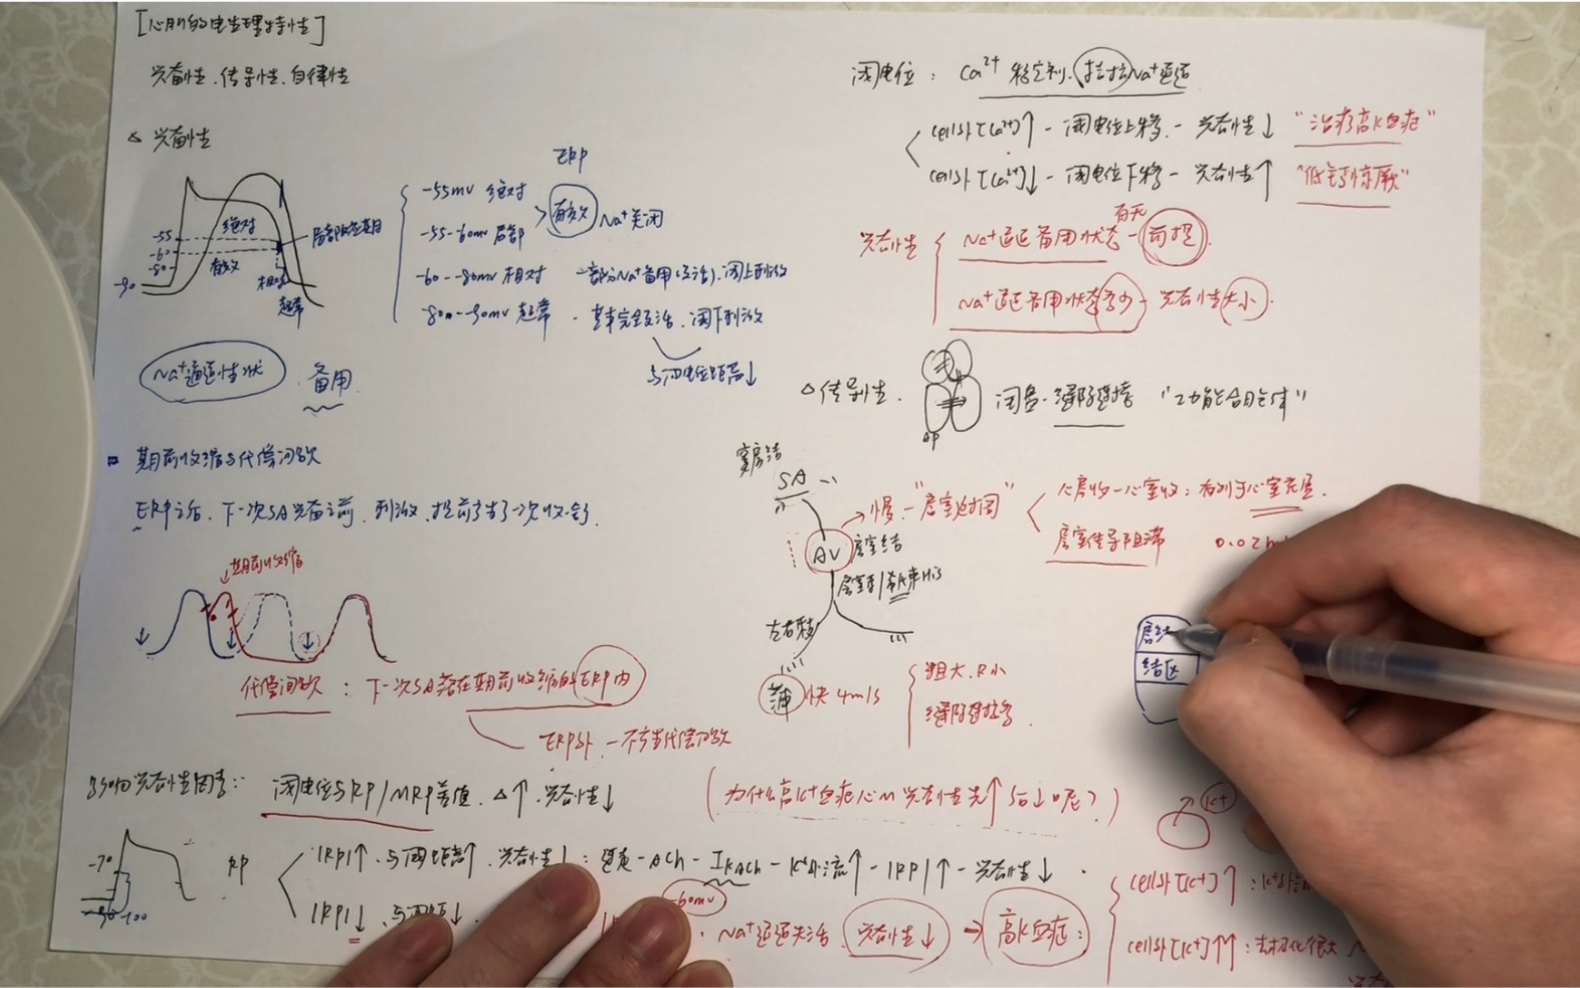 [心肌的电生理特性]
兴奋性.传导性.自律性
△ 兴奋性
-55
-60
-80
-90
绝对
有效
局部反应期
相对
超常
ERP
-55mv 绝对
-55~-60mv 局部
有效
Na⁺关闭
-60~-80mv 相对 - 部分Na⁺备用(复活).阈上刺激
-80~-90mv 超常 - 基本完全复活.阈下刺激
与阈电位距离↓
Na⁺通道性状
备用
期前收缩与代偿间歇
ERP之后.下一次SA兴奋之前.刺激.提前产生了一次收缩.
↓期前收缩
代偿间歇:下一次SA落在期前收缩的ERP内
ERP外 - 不产生代偿间歇
影响兴奋性因素:
阈电位与RP/MRP差值.△↑.兴奋性↓
(为什么高K⁺血症心肌兴奋性先↑后↓呢?)
-70
-90
-100
RP
|RP|↑.与阈距离↑.兴奋性↓:迷走-ACh-IKACh-K⁺外流↑-|RP|↑-兴奋性↓
|RP|↓.与阈距↓.
-60mv
Na⁺通道失活.兴奋性↓→高K血症:
cells外[K⁺]↑:K⁺外
cells外[K⁺]↑↑:去极化很大
K⁺
阈电位:Ca²⁺ 稳定剂.拮抗Na⁺通道
cells外[Ca²⁺]↑-阈电位上移-兴奋性↓ "治疗高K血症"
cells外[Ca²⁺]↓-阈电位下移-兴奋性↑ "低钙惊厥"
兴奋性
有无
Na⁺通道备用状态-前提.
Na⁺通道备用状态多少-兴奋性大小.
△传导性.
AP
闰盘-缝隙连接 "功能合胞体"
窦房结
SA
AV
房室结
慢-"房室延搁"
心房收-心室收:有利于心室充盈.
房室传导阻滞 0.02m
房室束/希氏束His
左右束支
蒲
快4m/s
粗大.R小
缝隙连接多
房结
结区